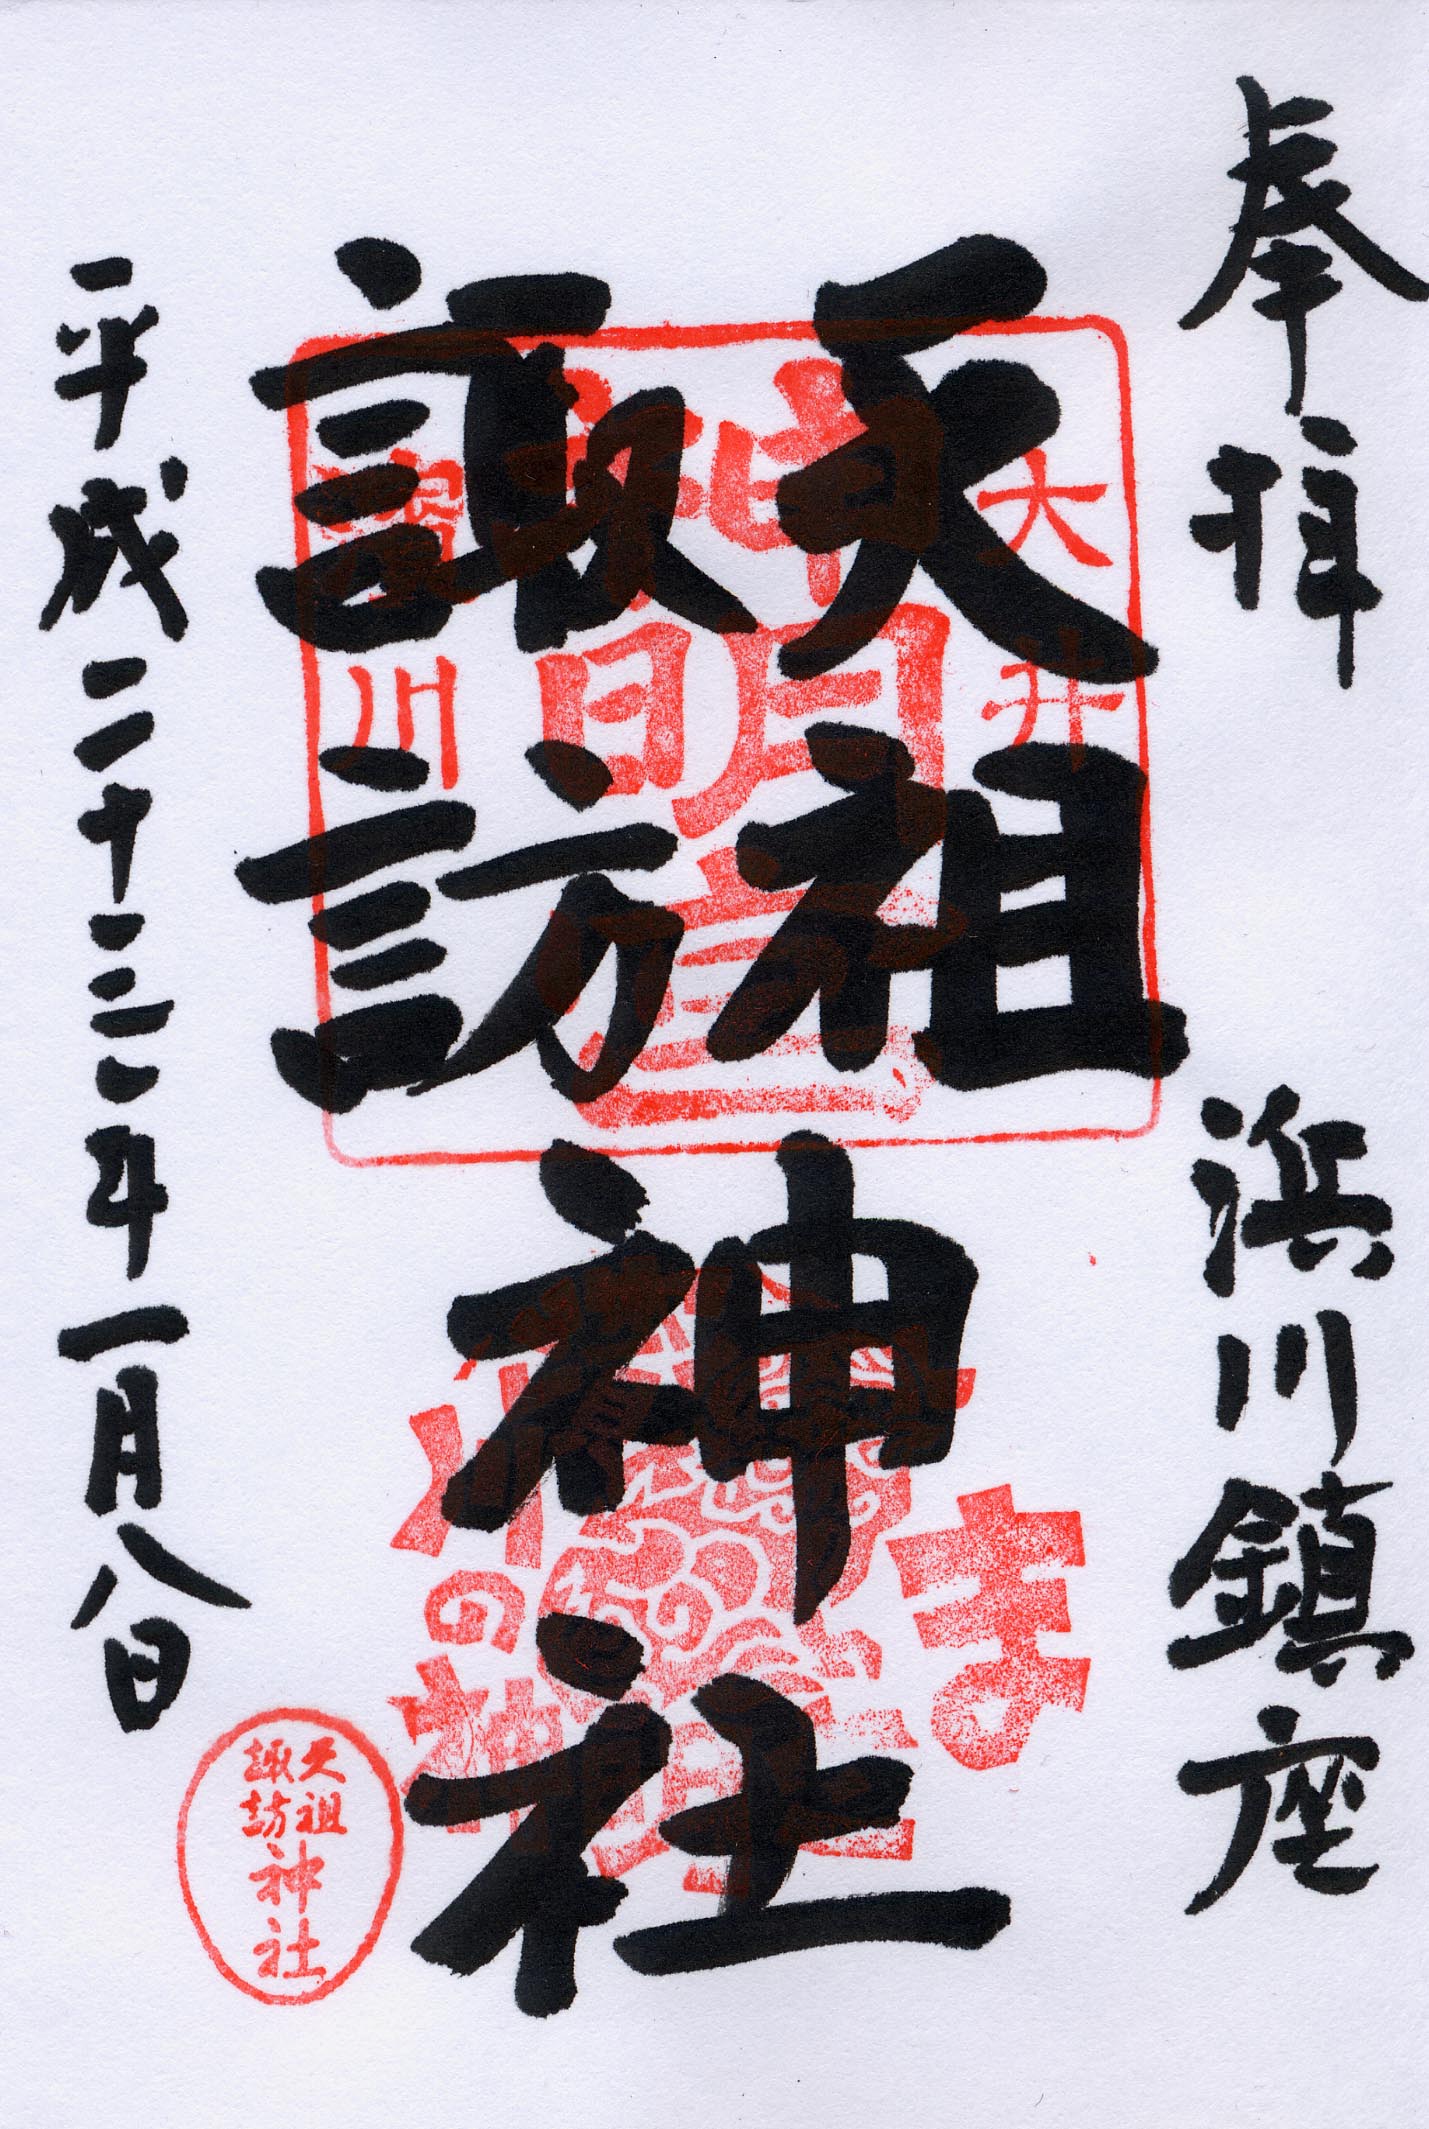 奉拝
浜川鎮座
天祖
諏訪
神社
平成二十三年一月八日
大井
神明
川
ま
の神
天祖
諏訪
神社